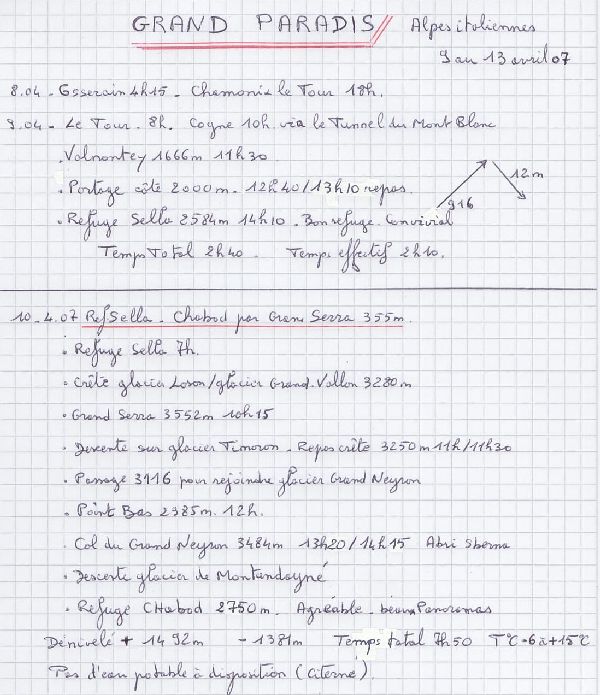 GRAND PARADIS Alpes italiennes
9 au 13 avril 07
8.04 - Esserain 4h15 - Chamonix le Tour 18h.
9.04 - Le Tour - 8h. Cogne 10h. via le Tunnel du Mont Blanc
. Valnontey 1666m 11h30
. Portage côte 2000m - 12h40/13h10 repas.
12m
916
. Refuge Sella 2584m 14h10 - Bon refuge. Convivial
Temps Total 2h40 - Temps effectif 2h10.
10-4.07 Ref Sella - Chabod par Gran Serra 355m.
. Refuge Sella 7h.
. Crête glacier Loson/glacier Grand Vallon 3280m
. Grand Serra 3552m 10h15
. Descente sur glacier Timoron - Repos crête 3250m 11h/11h30
. Passage 3116 pour rejoindre glacier Grand Neyron
. Point Bas 2985m. 12h.
. Col du Grand Neyron 3484m 13h20/14h15 Abri
. Descente glacier de Montandayné
. Refuge CHabod 2750m. Agréable - beaux Panoramas
Dénivelé + 1492m - 1381m Temps total 7h50 T°C -6 à +15°C
Pas d'eau potable à disposition (citerne).